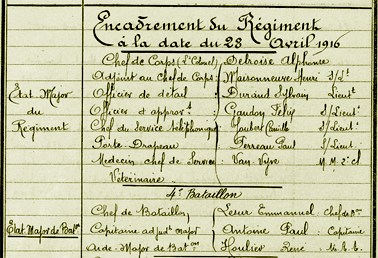 Encadrement du Régiment
à la date du 28 Avril 1916
Chef de Corps (Lt Colonel) Delroise Alphonse
Adjoint au Chef de Corps Maisonneuve Henri S/Lt
État Major du Régiment
Officier de détail Durand Sylvain Lieutt
Officier d'approvt Gaudon Félix S/Lieutt
Chef du Service téléphonique Joubert Camille S/Lieutt
Porte-Drapeau Ferreau Paul S/Lieutt
Médecin chef de Service Van-Vyve M.M. 2e cl
Vétérinaire
4e Bataillon
Chef de Bataillon Lesur Emmanuel Chef de Bon
État Major de Baton
Capitaine adjudt major Antoine Paul Capitaine
Aide-Major de Baton Houlier René